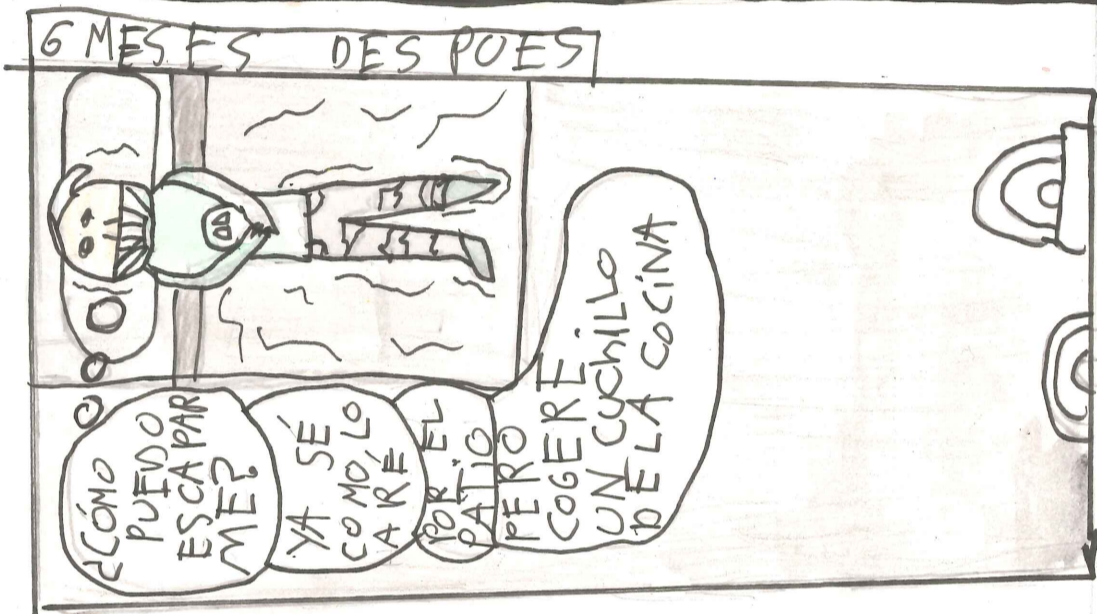 6 MESES DESPOES
¿CÓMO
PUEDO
ESCAPAR
ME?
YA SÉ
COMO LO
ARÉ
POR EL
PATIO
PERO
COGERÉ
UN CUCHILLO
DE LA COCINA